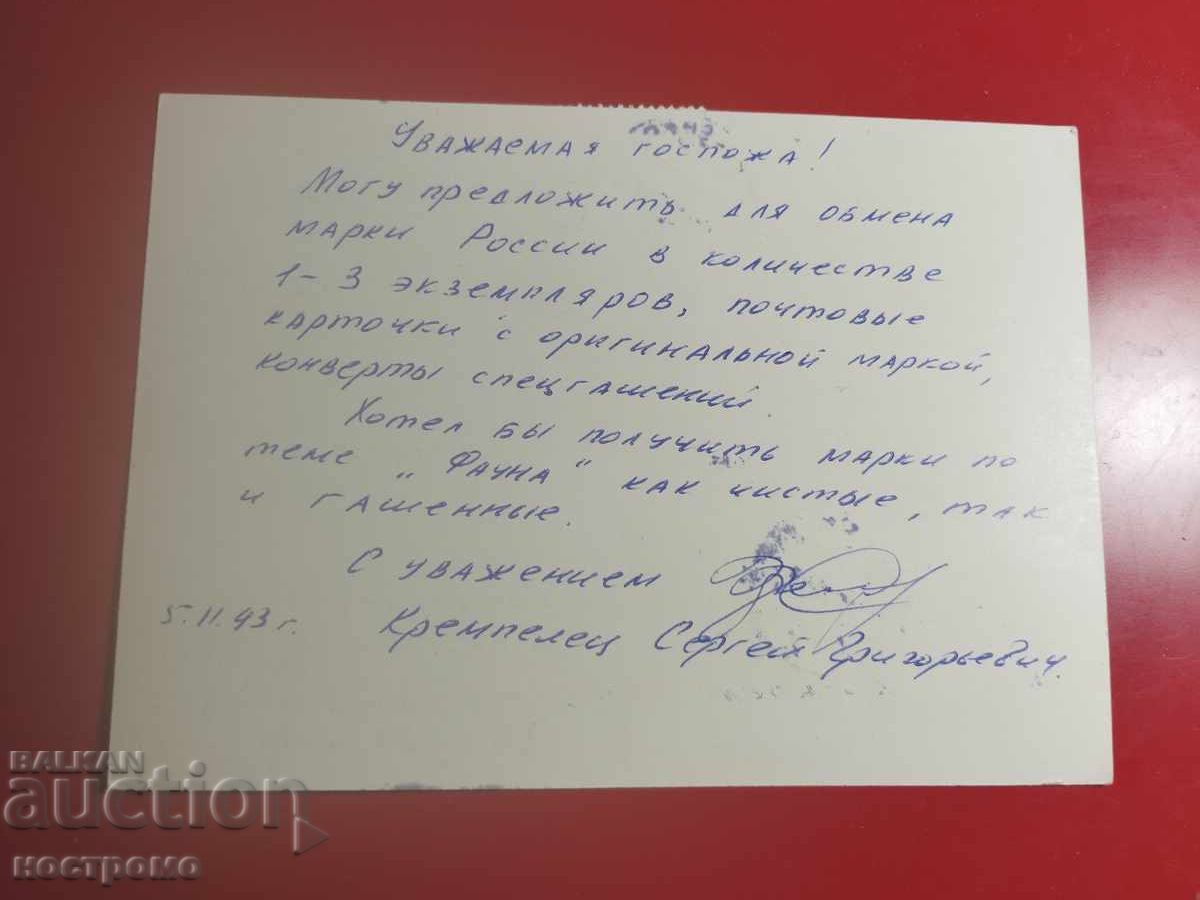 Уважаемая госпожа!
Могу предложить для обмена
марки России в количестве
1-3 экземпляров, почтовые
карточки с оригинальной маркой,
конверты спецгашений.
Хотел бы получить марки по
теме „Фауна“ как чистые, так
и гашенные.
С уважением
5.11.93 г. Кремпелец Сергей Григорьевич.
BALKAN
auction
ностромо